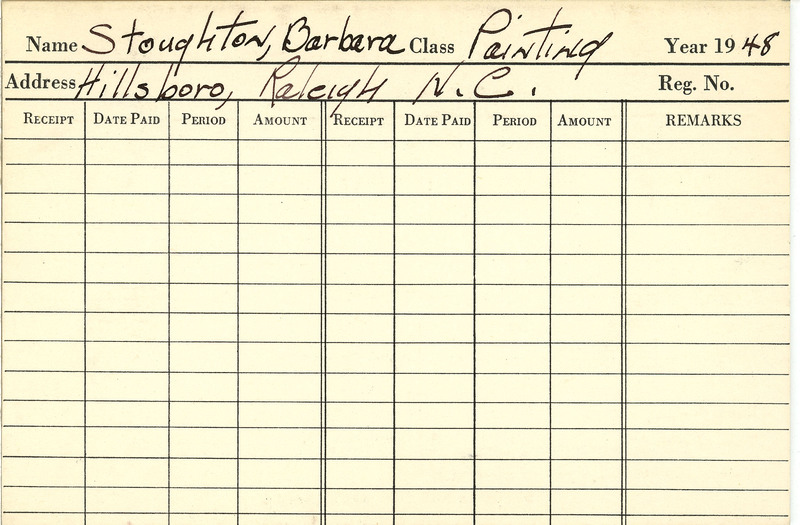 Name Stoughton, Barbara Class Painting Year 1948
Address Hillsboro, Raleigh N.C. Reg. No.
RECEIPT DATE PAID PERIOD AMOUNT RECEIPT DATE PAID PERIOD AMOUNT REMARKS